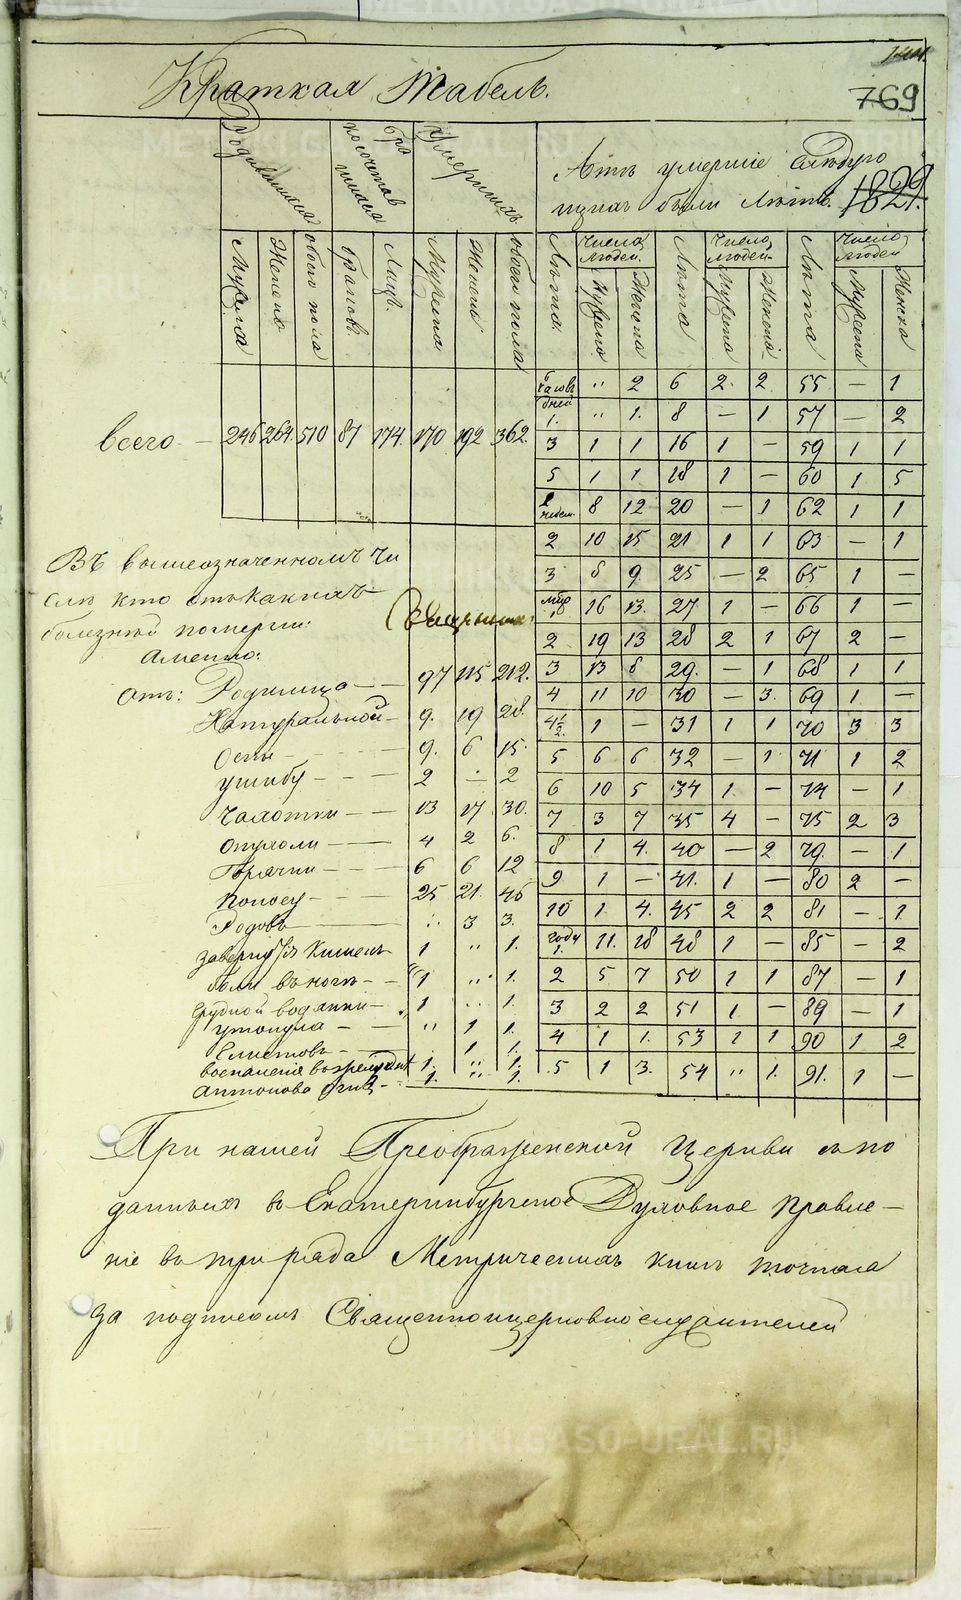 Краткая Табель.
769
Родившихся
бракосочетавшихся
Умерших
Летъ умершiе
были Летъ. 1829.
Мужска Женска обоего пола браковъ. Лицъ. Мужска Женска обоего пола Лѣта. Число людей. Лѣта Число людей Лѣта Число людей
Мужска Женска Мужска Женска Мужска Женска
всего — 246 264 510 87 174 170 192 362.
6 часовъ " 2 6 2 2 55 — 1
дней 1. " 1. 8 — 1 57 — 2
3 1 1 16 1 — 59 1 1
5 1 1 18 1 — 60 1 5
недел. 8 12 20 — 1 62 1 1
2 10 15 21 1 1 63 — 1
3 8 9 25 — 2 65 1 —
16 13. 27 1 — 66 1 —
2 19 13 28 2 1 67 2 —
3 13 8 29. — 1 68 1 1
4 11 10 30 — 3. 69 1 —
4½ 1 — 31 1 1 70 3 3
5 6 6 32 — 1 71 1 2
6 10 5 34 1 — 74 — 1
7 3 7 35 4 — 75 2 3
8 1 4. 40 — 2 79. — 1
9 1 — 41. 1 — 80 2 —
10 1 4. 45 2 2 81 — 1
году 1. 11. 18 48 1 — 85 — 2
2 5 7 50 1 1 87 — 1
3 2 2 51 1 — 89 — 1
4 1 1. 53 1 1 90 1 2
5 1 3. 54 " 1. 91. 1 —
Въ вышеозначенномъ чи
слѣ кто отъ какихъ
болезней померли
а менно:
отъ: Родимца — 97 115 212.
Натуральной — 9. 19 28.
Оспы — 9. 6 15.
ушибу — 2 — 2
Чахотки — 13 17 30.
опухоли — 4 2 6.
Горячки — 6 6 12
поносу — 25 21. 46
Родовъ — " 3 3.
1 " 1.
боли въ ногѣ — 1 " 1.
грудной водянки — 1 " 1.
утонула — " 1 1.
1 1.
воспаленiя 1. " 1.
Антонова огня — 1. " 1.
При нашей Преображенской Церкви съ по
данныхъ въ Екатеринбургское Духовное Правле-
нiе въ три ряда Метрическихъ книгъ точная
за подписомъ Священноицерковнослужителей
METRIKI.GASO-URAL.RU